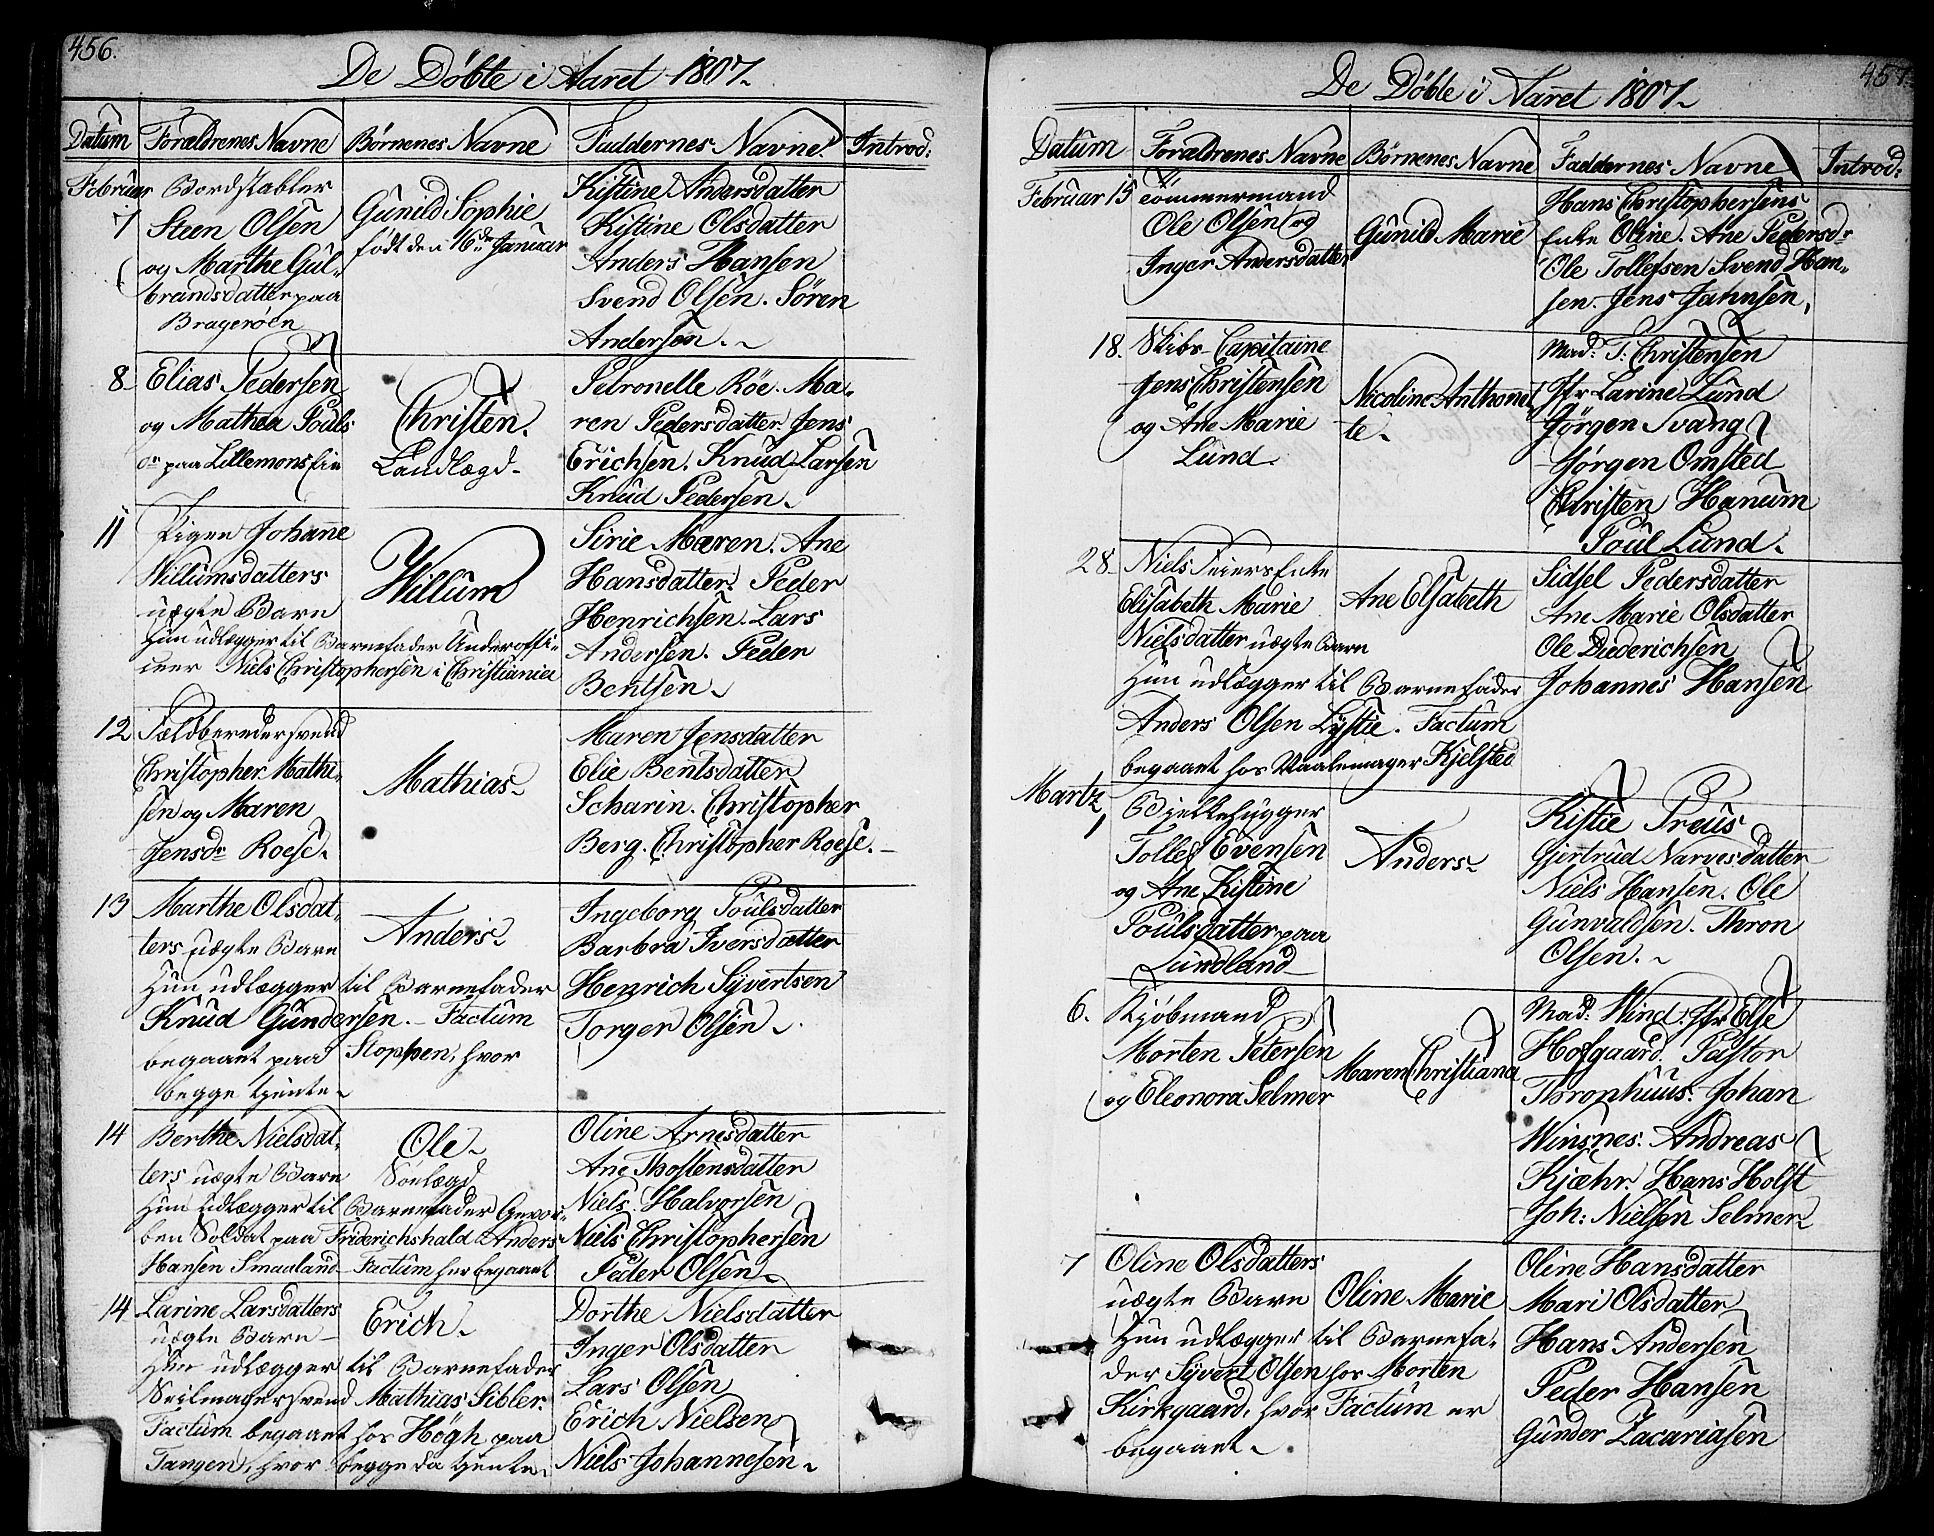 456.
De Döbte i Aaret 1807.
Datum Forældrenes Navne Börnenes Navne Faddernes Navne. Introd:
Februar
7
Bordstabler
Steen Olsen
og Marthe Gul-
brandsdatter paa
Brageröen
Gunild Sophie
født den 16de Januar
Kistine Andersdatter
Kistine Olsdatter
Anders Hansen
Svend Olsen. Sören
Andersen.
8
Elias Pedersen
og Mathea Pouls
dr paa Lillemonsfin
Christen.
Landlægd.
Petronelle Röe. Ma-
ren Pedersdatter. Jens
Erichsen. Knud Larsen
Knud Pedersen.
11
Pigen Johanne
Willumsdatters
uægte Barn
Hun udlægger til Barnefader Underoffi-
ceer Niels Christophersen i Christiania
Willum
Sirie Maren. Ane
Hansdatter. Peder
Henrichsen. Lars
Andersen. Peder
Bentsen.
12
Feldberedersvend
Christopher Mathi-
sen og Maren
Jensdr Roese.
Mathias.
Maren Jensdatter
Elie Bentsdatter
Scharin. Christopher
Berg. Christopher Roese.
13
Marthe Olsdat-
ters uægte Barn
Hun udlægger til Barnefader
Knud Gundersen. Factum
begaaet paa Stoppen, hvor
begge tjente.
Anders.
Ingeborg Poulsdatter
Barbra Iversdatter
Henrich Syvertsen
Torger Olsen.
14
Berthe Nielsdat-
ters uægte Barn
Hun udlægger til Barnefader Gevor-
ben Soldat paa Friderichshald Anders
Hansen Smaaland Factum her begaaet
Ole.
Söelægd
Oline Arnesdatter
Ane Thostensdatter
Niels Halvorsen
Niels Christophersen
Peder Olsen.
14
Larine Larsdatters
uægte Barn
Hun udlægger til Barnefader
Seilmagersvend Mathias Sibler.
Factum begaaet hos Högh paa
Tangen, hvor begge da tjente.
Erich.
Dorthe Nielsdatter
Inger Olsdatter
Lars Olsen
Erich Nielsen
Niels Johannesen.
457.
De Döbte i Aaret 1807.
Datum Forældrenes Navne Börnenes Navne Faddernes Navne Introd:
Februar 15
Tömmermand
Ole Olsen og
Inger Andersdatter
Gunild Marie
Hans Christophersens
Enke Oline. Ane Pedersdr
Ole Tollefsen Svend Han-
sen. Jens Jahnsen.
18.
Skibs Capitaine
Jens Christensen
og Ane Marie
Lund.
Nicoline Anthonet
te.
Mad: T: Christensen
Jfr Larine Lund
Jörgen Svang
Jörgen Omsted
Christen Hanum
Poul Lund.
28.
Niels Feiers Enke
Elisabeth Marie
Nielsdatter uægte Barn
Hun udlægger til Barnefader
Anders Olsen Lystie. Factum
begaaet hos Maalemager Kjelsted
Ane Elsabeth
Sidsel Pedersdatter
Ane Marie Olsdatter
Ole Diederichsen
Johannes Hansen
Martz
1
Bielkehugger
Tollef Evensen
og Ane Kistine
Poulsdatter paa
Lundland
Anders.
Kistie Preus
Gjertrud Narvesdatter
Niels Hansen. Ole
Gunvaldsen. Thron
Olsen.
6.
Kjöbmand
Morten Petersen
og Eleonora Selmer
Maren Christiana
Mad: Wind. Jfr Else
Hofgaard. Pastor
Thronhuus. Johan
Winsnes. Andreas
Kjæhr. Hans Holst
Joh: Nielsen Selmer
7
Oline Olsdatters
uægte Barn
Hun udlægger til Barnefa-
der Syvert Olsen hos Morten
Kirkgaard, hvor Factum er
begaaet.
Oline Marie
Oline Hansdatter
Mari Olsdatter
Hans Andersen
Peder Hansen
Gunder Zacariasen